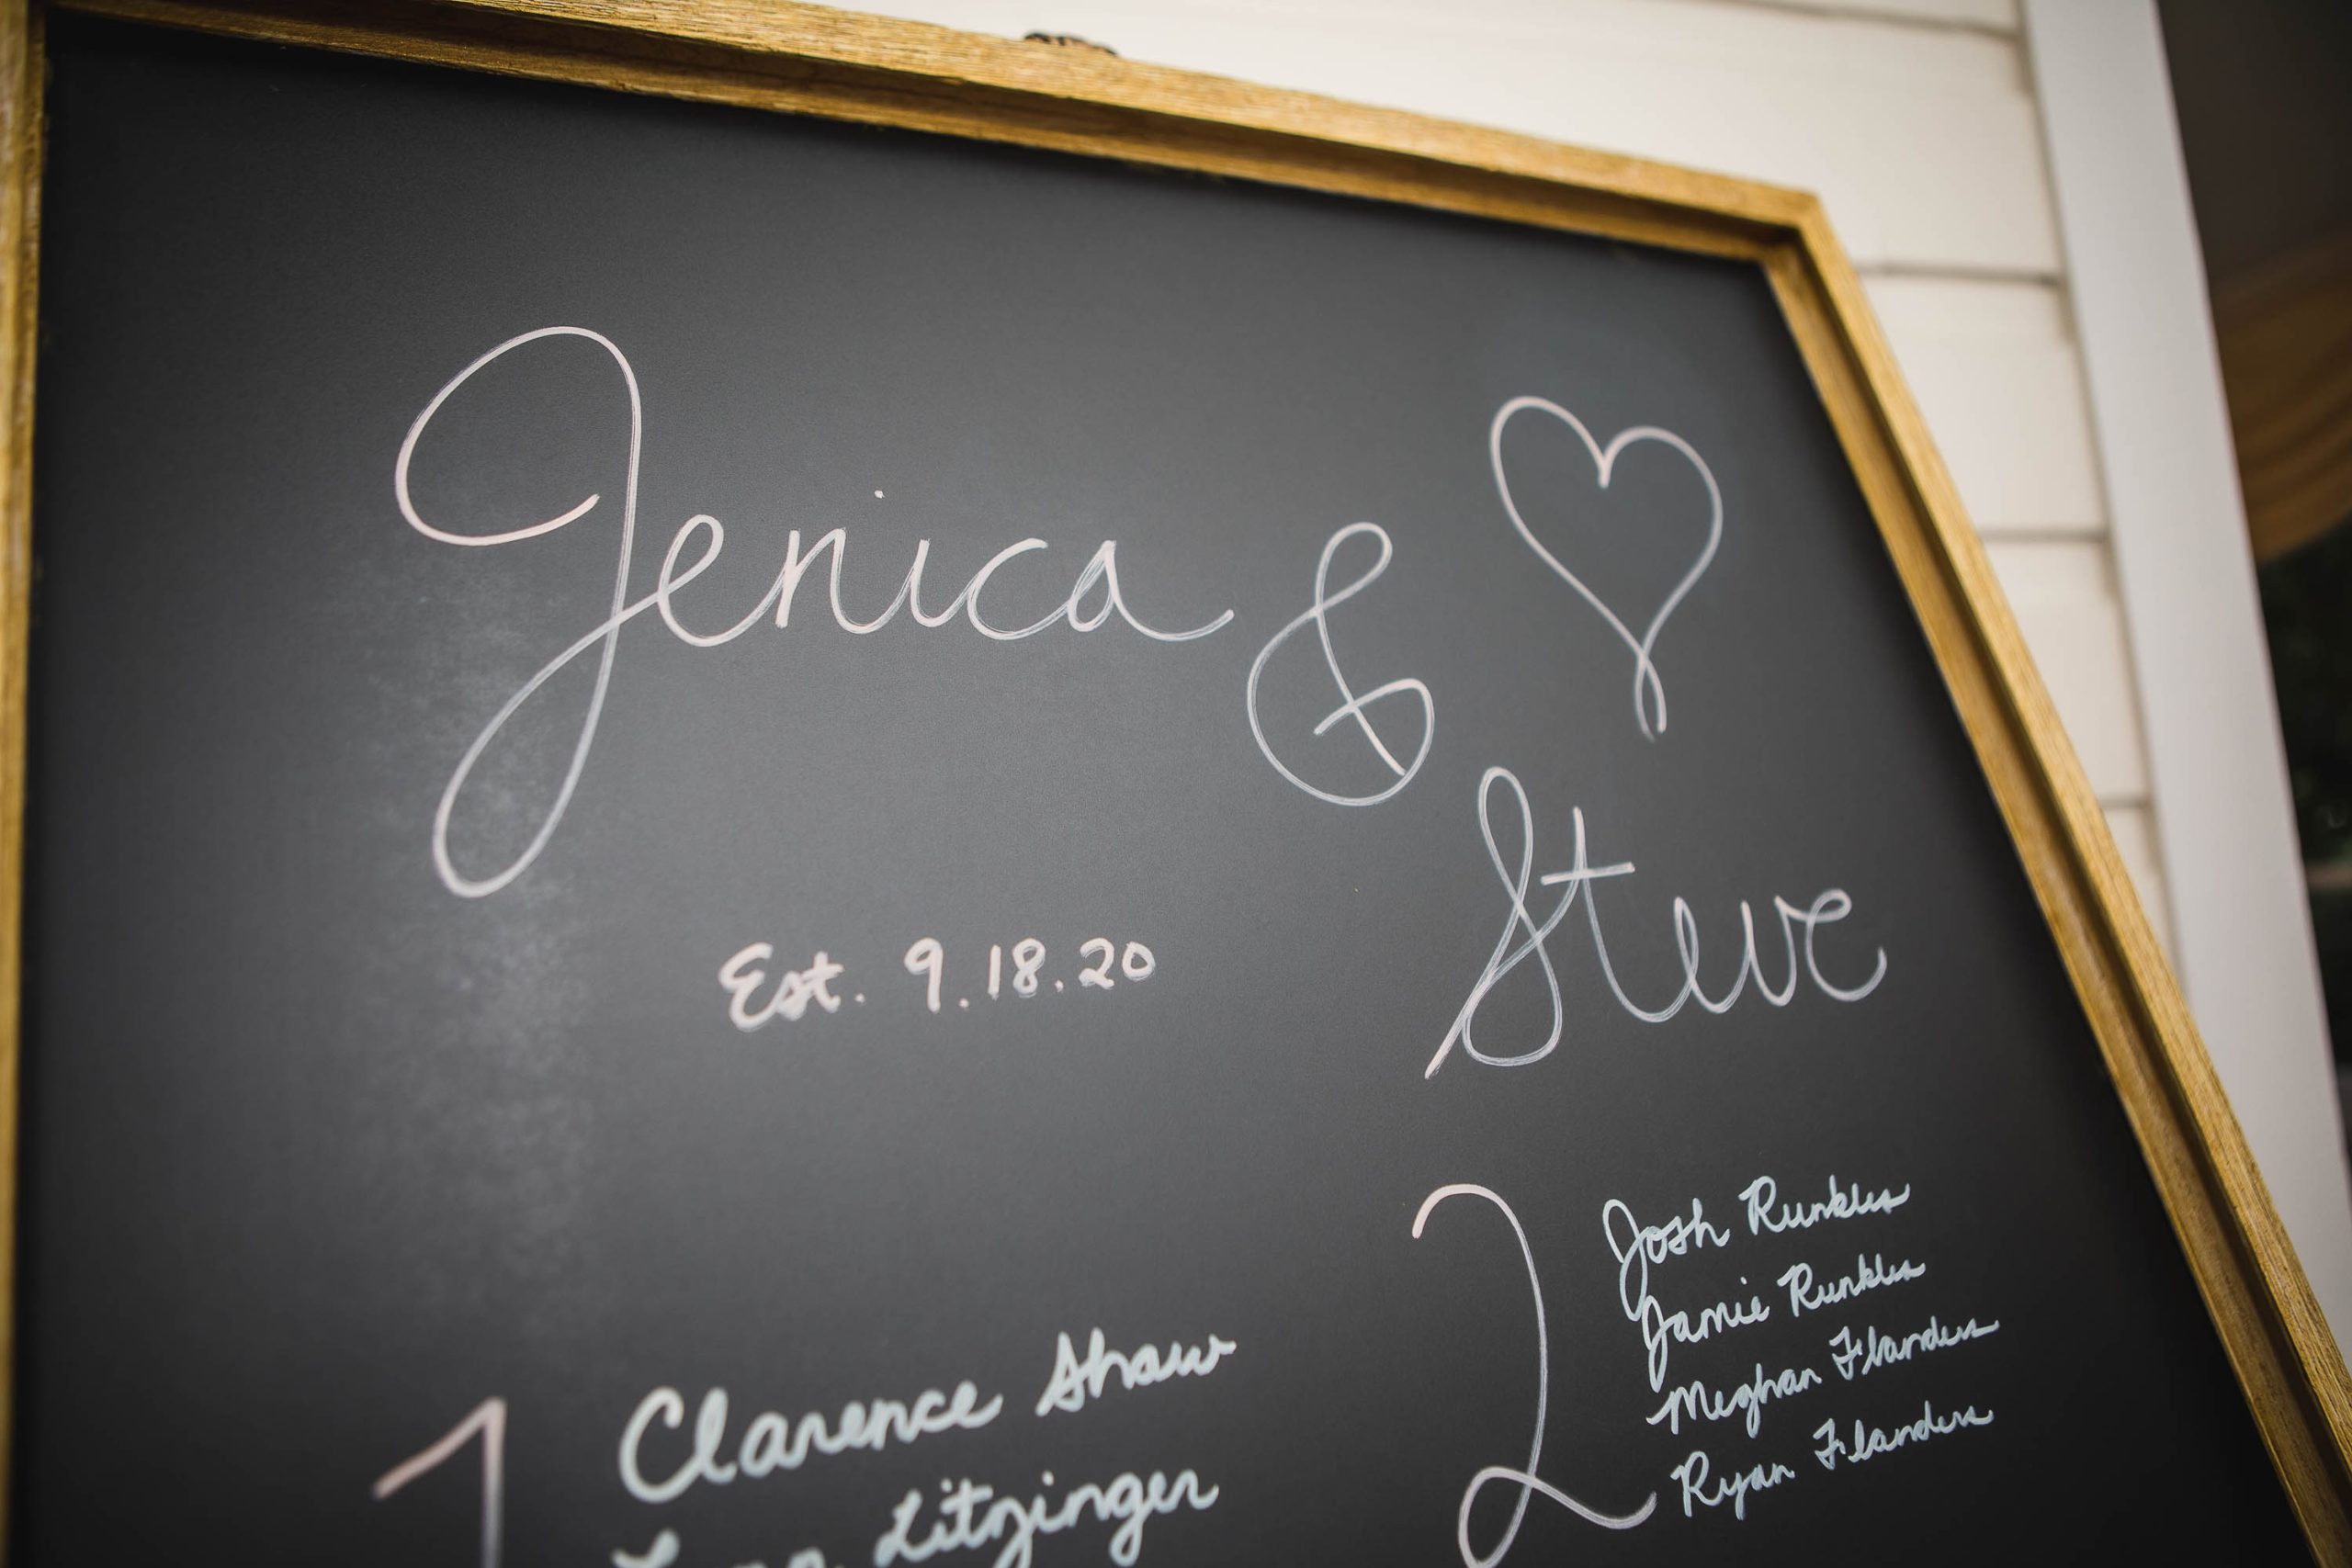 Jenica &
Steve
Est. 9.18.20
1
Clarence Shaw
Litzinger
2
Josh Runkles
Jamie Runkles
Meghan Flanders
Ryan Flanders